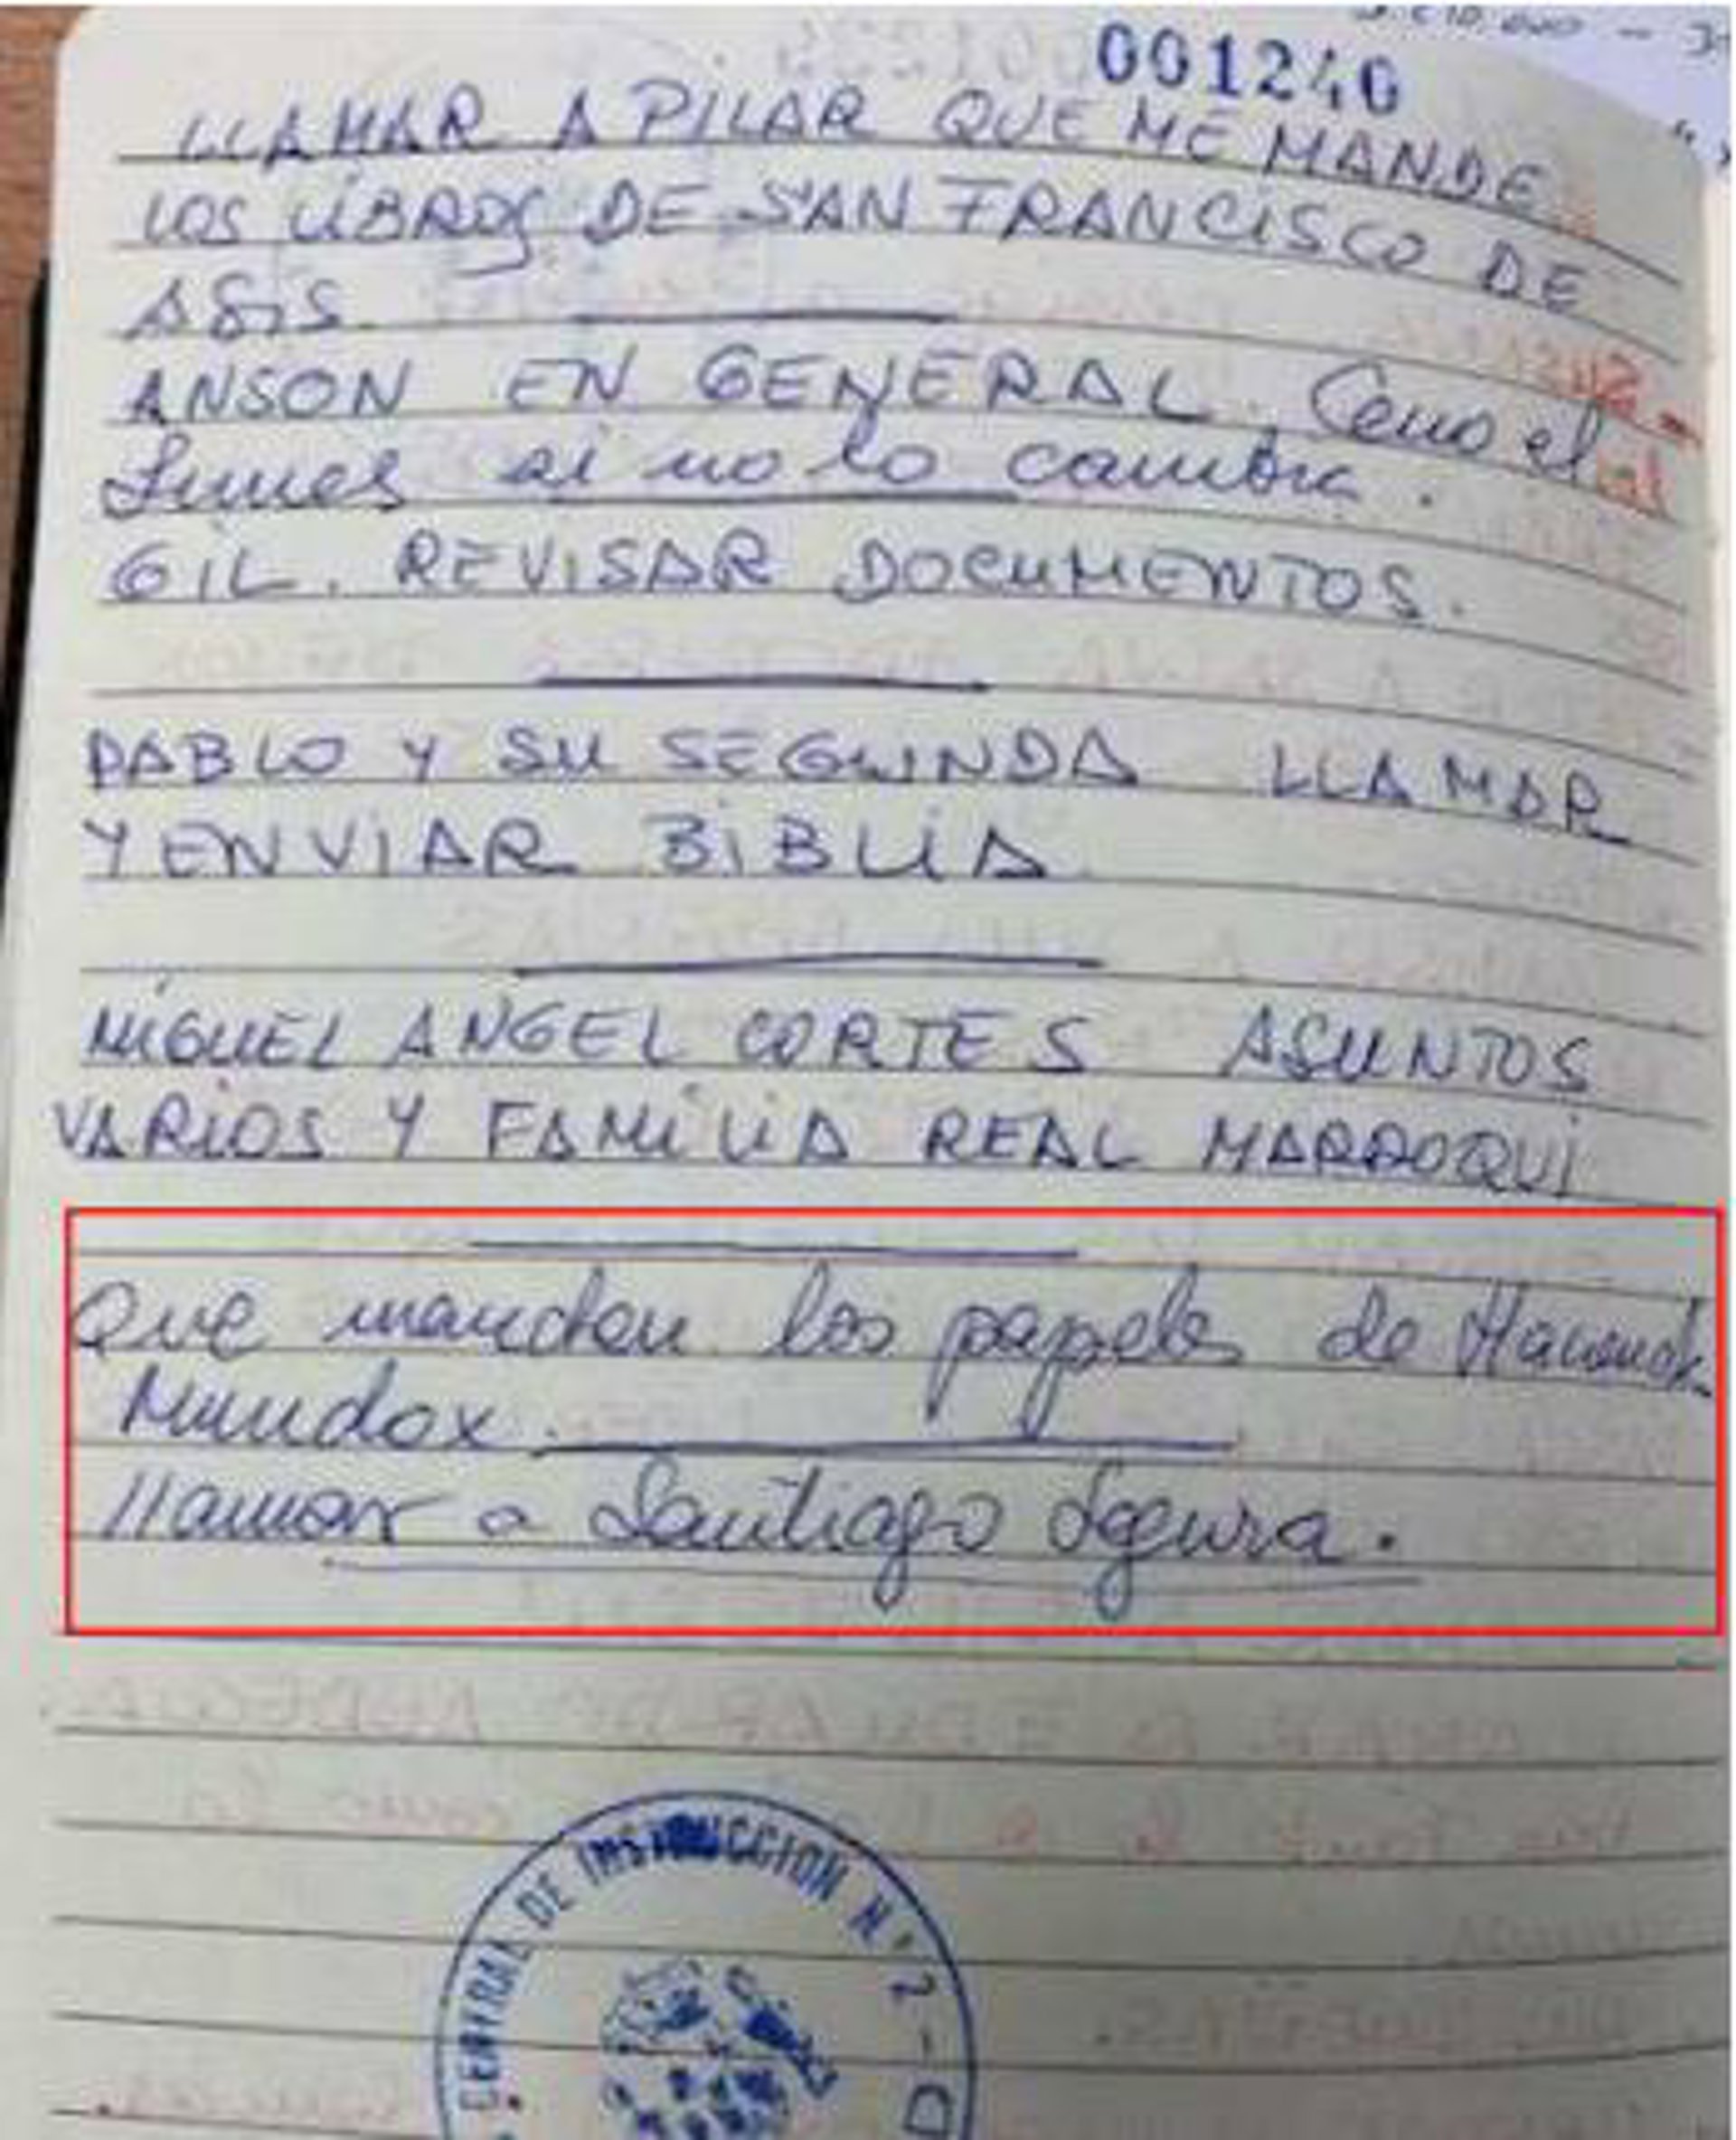 001240
LLAMAR A PILAR QUE ME MANDE
LOS LIBROS DE SAN FRANCISCO DE
ASIS
ANSON EN GENERAL. Ceno el
Lunes si no lo cambia.
GIL. REVISAR DOCUMENTOS.
PABLO Y SU SEGUNDA LLAMAR
Y ENVIAR BIBLIA
MIGUEL ANGEL CORTES ASUNTOS
VARIOS Y FAMILIA REAL MARROQUI
Que manden los papeles de Hacienda
Mundox.
llamar a Santiago Segura.
CENTRAL DE INSTRUCCION N.º 2 -